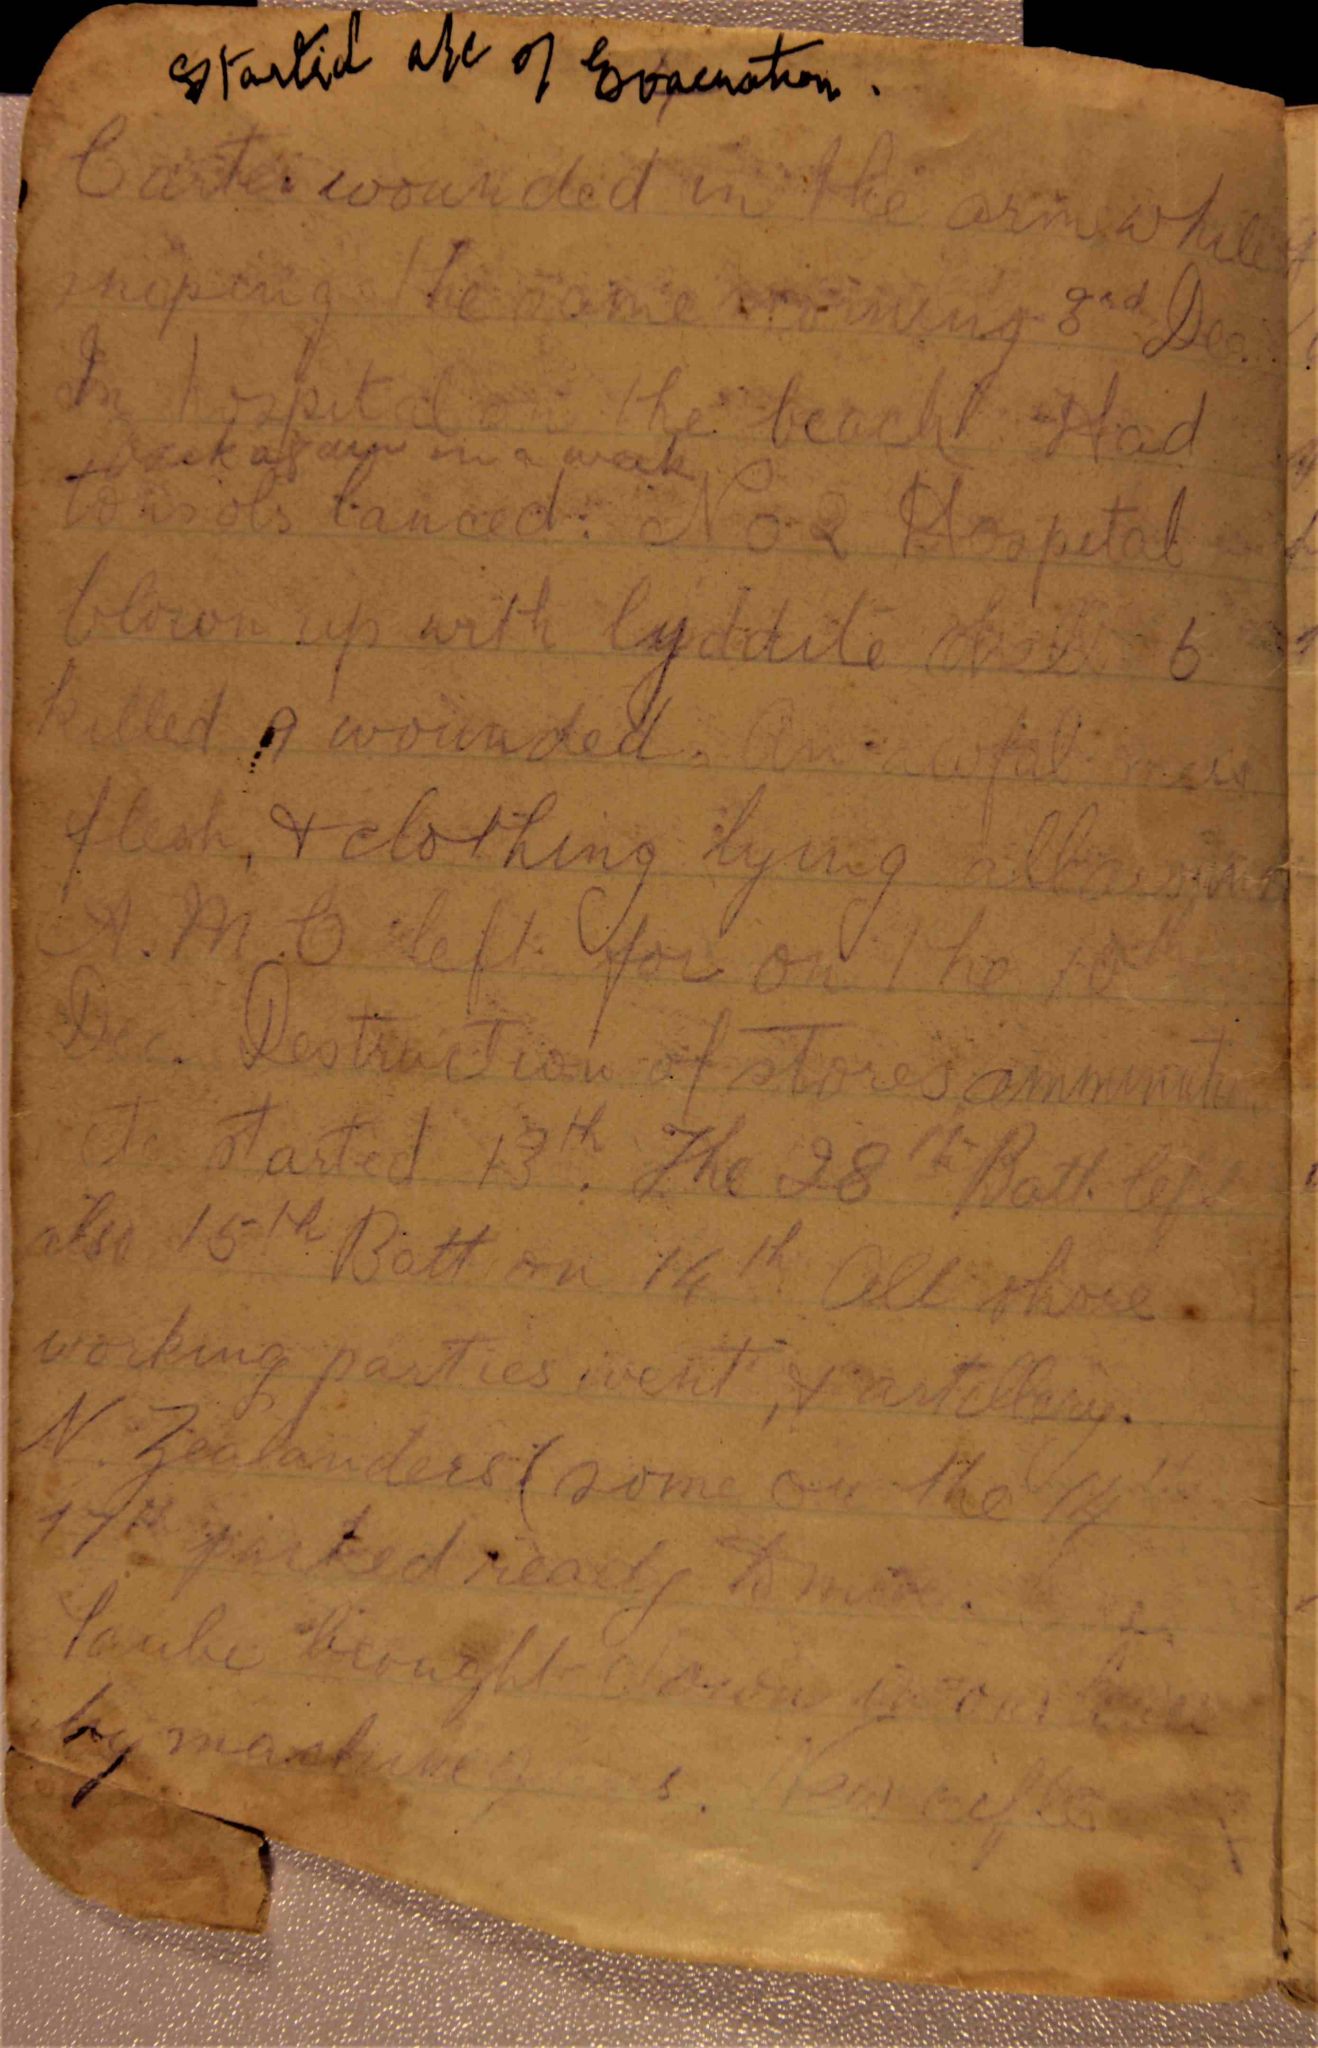 Started a/c of Evacuation.
Carter wounded in the arm while
sniping the same morning 3rd Dec.
In hospital on the beach Had
Back again in a week
tonsols lanced. No 2 Hospital
blown up with lyddite shell 6
killed 9 wounded. An awful mess
flesh, & clothing lying all around
A.M.C left for on the 10th
Dec. Destruction of stores ammunition
etc started 13th. The 28th Batt. left
also 15th Batt on 14th All shore
working parties went, & artillery.
N. Zealanders (some on the 14th
17th packed ready to move.
Taube brought down in our lines
by machine guns. New rifles